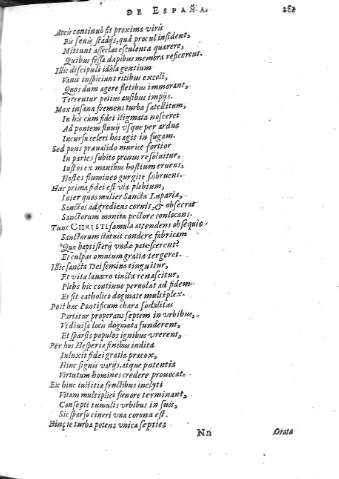 DE ESPAÑA. 281
Accis continuò fit proxima viris
Bis senis stadijs, quà procul insident,
Mittunt asseclas esculenta quærere,
Quibus fessa dapibus membra reficerent.
Illic discipuli idola gentium
Vanis inspiciunt ritibus excoli,
Quos dum agere fletibus immorant,
Terrentur potius ausibus impijs.
Mox insana fremens turba satellitum,
In his cùm fidei stigmata nosceret
Ad pontem fluuij vsque per ardua
Incursu celeri hos agit in fugam.
Sed pons præualido murice fortior
In partes subito pronus resoluitur,
Iustos ex manibus hostium eruens,
Hostes flumineo gurgite subruens.
Hac prima fidei est via plebium,
Inter quos mulier Sancta Luparia,
Sanctos adgrediens cernit, & obsecrat
Sanctorum monita pectore conlocans.
Tunc CHRISTI famula attendens obsequio
Sanctorum statuit condere fabricam
Quo baptisterij vndæ patescerent?
Et culpas omnium gratia tergeret.
Illic sancta Dei femina tinguitur,
Et vita lauacro tincta renascitur,
Plebs hic continuo peruolat ad fidem
Et fit catholico dogmate multiplex.
Post hæc Pontificum chara sodalitas
Partitur properans septem in vrbibus,
Vt diuisa locis dogmata funderent,
Et sparsis populos ignibus vrerent,
Per hos Hesperie finibus indita
Inluxit fidei gratia præcox,
Hinc signis varijs, atque potentia
Virtutum homines credere prouocat.
Ex hinc iustitiæ fructibus inclyti
Vitam multiplici fœnore terminant,
Consepti tumulis vrbibus in suis,
Sic sparso cineri vna corona est.
Hinc te turba potens vnica septies
Nn Orata